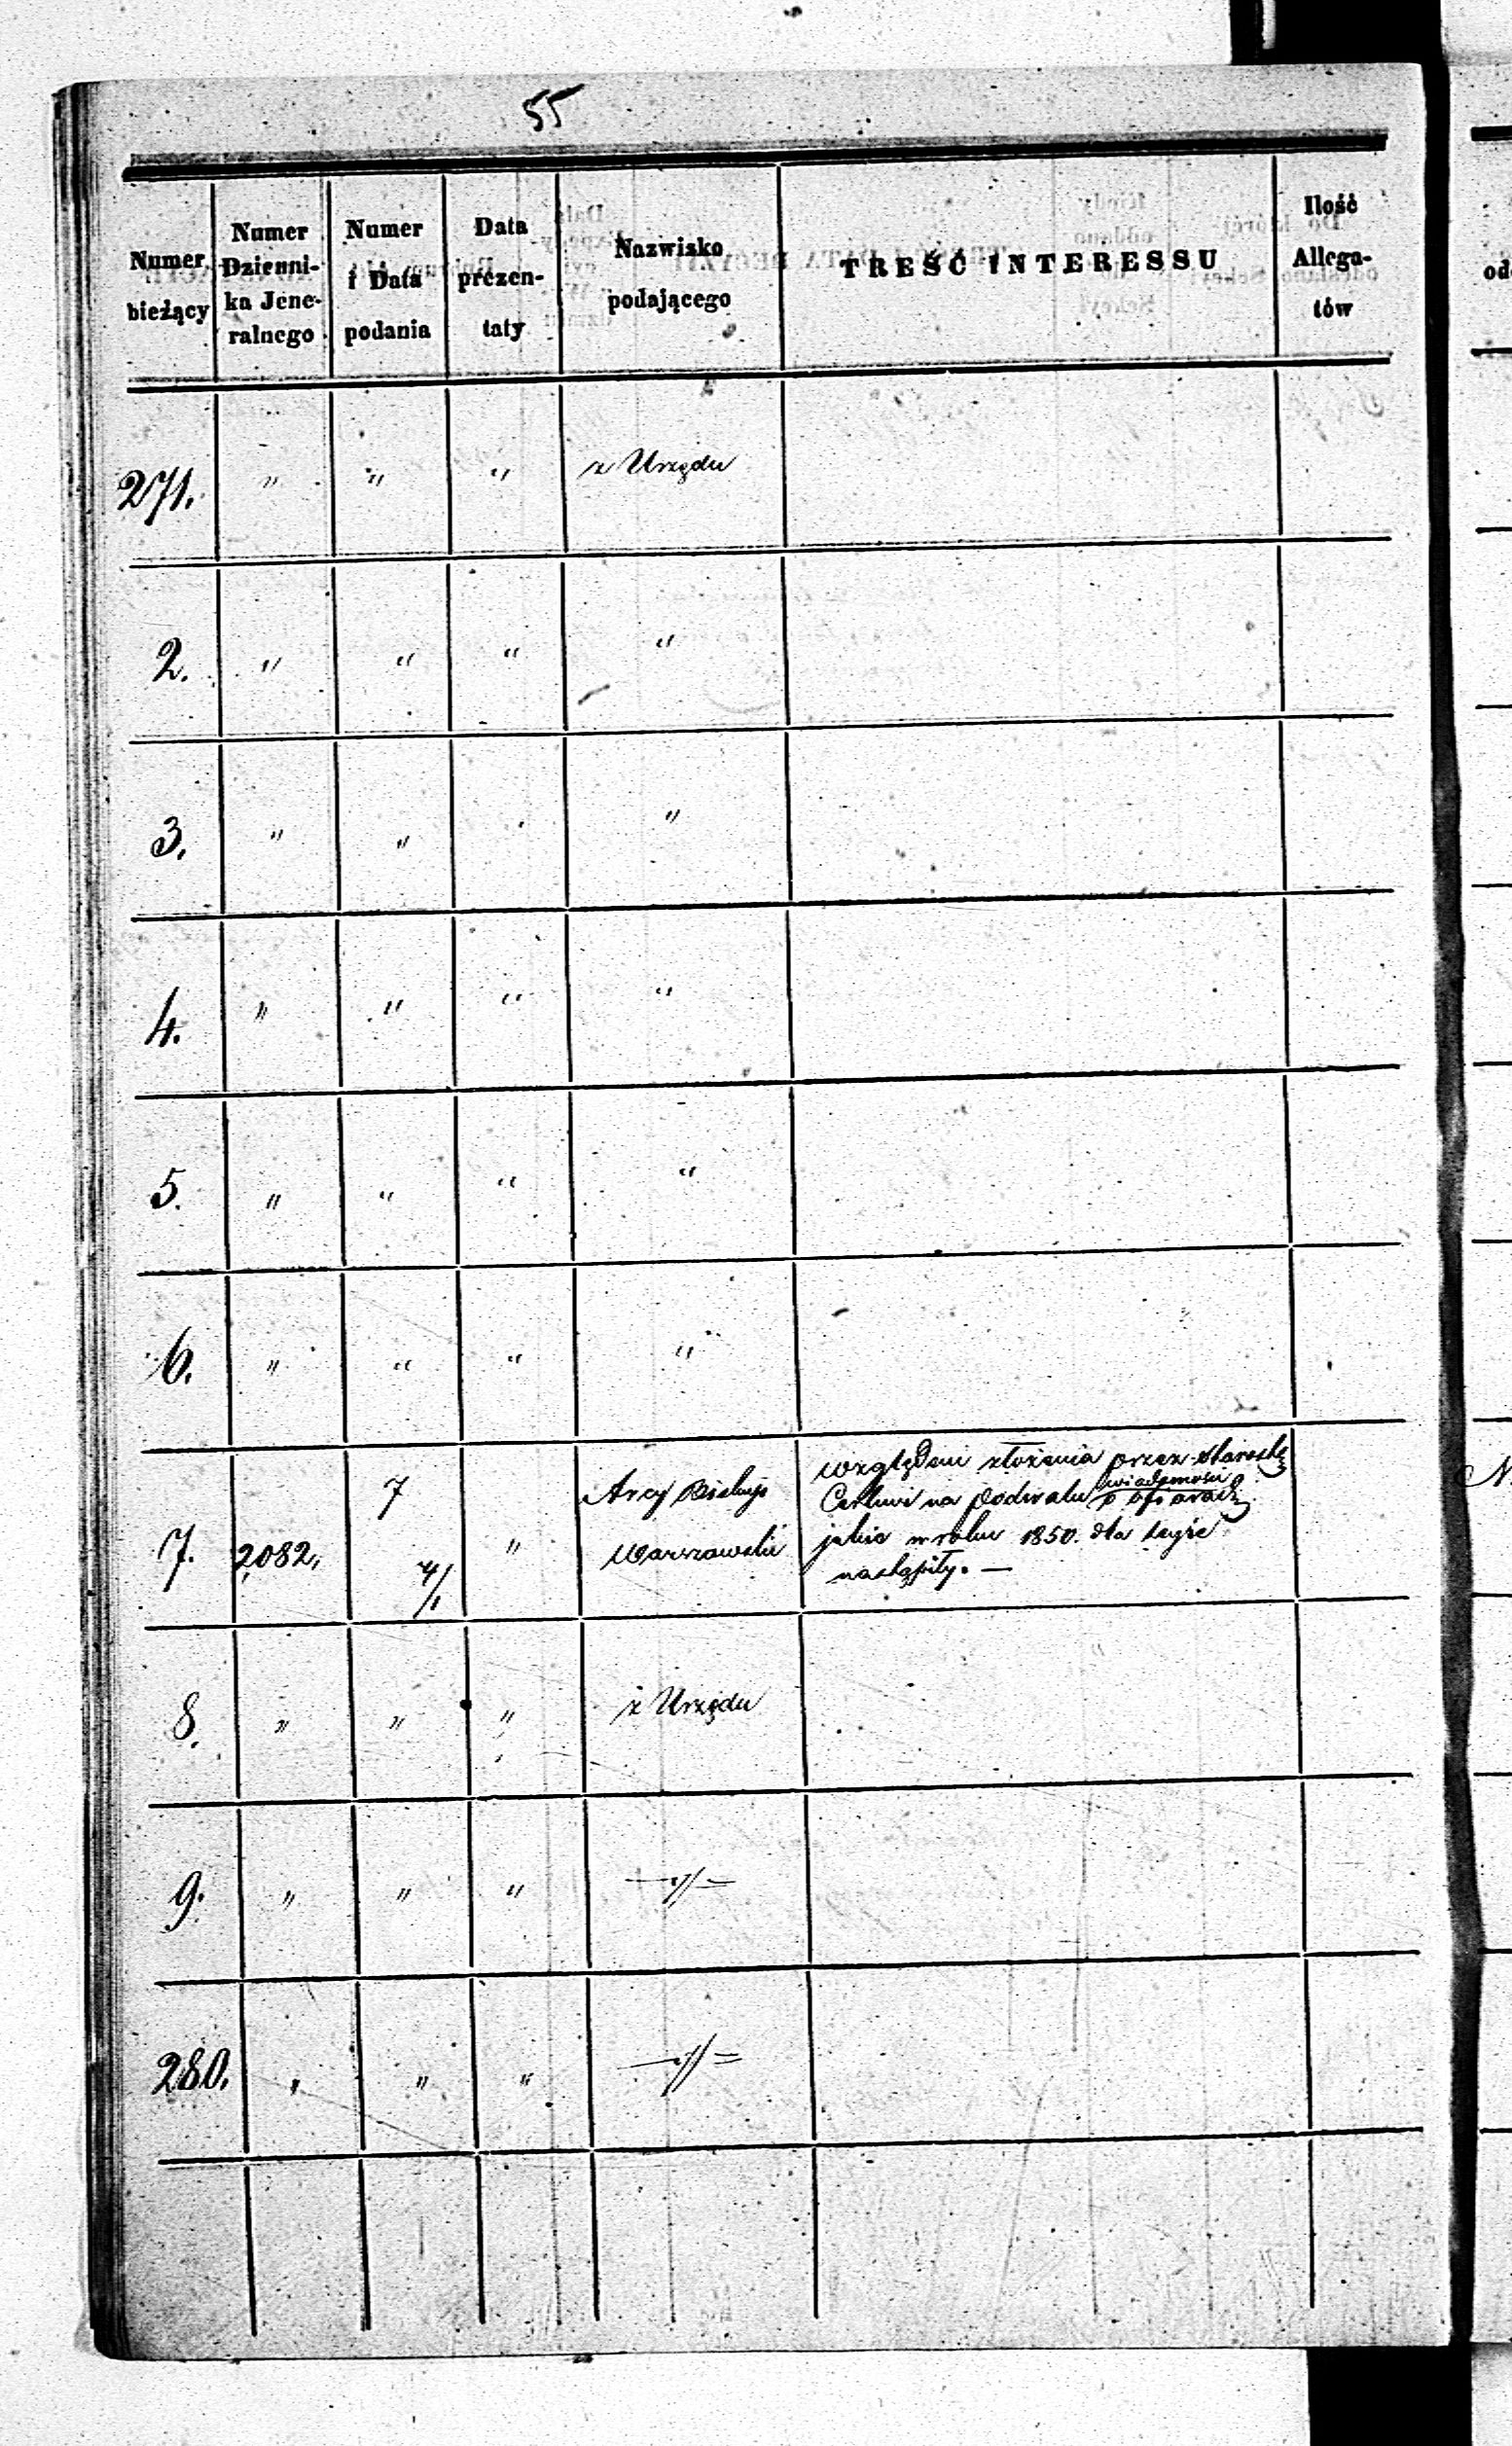 55
Numer bieżący | Numer Dzienni-ka Jene-ralnego | Numer i Data podania | Data prezen-taty | Nazwisko podającego | TREŚĆ INTERESSU | Ilość Allega-tów
271. | " | " | " | z Urzędu
2. | " | " | " | "
3. | " | " | | "
4. | " | " | " | "
5. | " | " | " | "
6. | " | " | " | "
7. | 2082. | 7 4/1 | " | Arcy Biskup Warszawski | względem złożenia przez starostę
Cerkwi na Podwalu wiadomości o ofiarach
jakie w roku 1850. dla tejże
nastąpiły. —
8. | " | " | " | z Urzędu
9. | " | " | " | —"—
280. | " | " | " | —"—